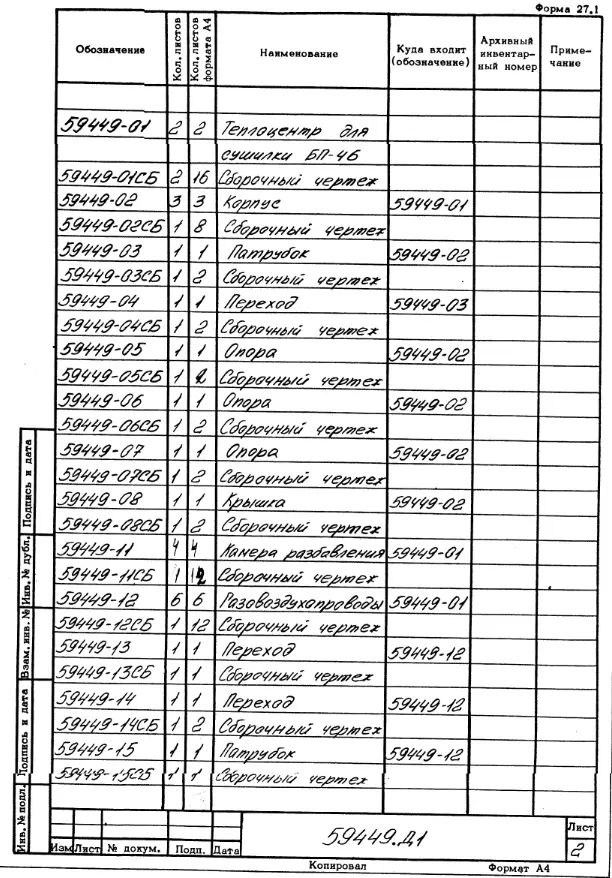 Форма 27.1
Обозначение Кол. листов Кол. листов формата А4 Наименование Куда входит (обозначение) Архивный инвентарный номер Примечание
59449-01 2 2 Теплоцентр для
сушилки БП-46
59449-01СБ 2 16 Сборочный чертеж
59449-02 3 3 Корпус 59449-01
59449-02СБ 1 8 Сборочный чертеж
59449-03 1 1 Патрубок 59449-02
59449-03СБ 1 2 Сборочный чертеж
59449-04 1 1 Переход 59449-03
59449-04СБ 1 2 Сборочный чертеж
59449-05 1 1 Опора 59449-02
59449-05СБ 1 2 Сборочный чертеж
59449-06 1 1 Опора 59449-02
59449-06СБ 1 2 Сборочный чертеж
59449-07 1 1 Опора 59449-02
59449-07СБ 1 2 Сборочный чертеж
59449-08 1 1 Крышка 59449-02
59449-08СБ 1 2 Сборочный чертеж
59449-11 4 4 Камера разбавления 59449-01
59449-11СБ 1 12 Сборочный чертеж
59449-12 6 6 Газовоздухопроводы 59449-01
59449-12СБ 1 12 Сборочный чертеж
59449-13 1 1 Переход 59449-12
59449-13СБ 1 1 Сборочный чертеж
59449-14 1 1 Переход 59449-12
59449-14СБ 1 2 Сборочный чертеж
59449-15 1 1 Патрубок 59449-12
59449-15СБ 1 1 Сборочный чертеж
Подпись и дата
Инв. № дубл.
Взам. инв. №
Подпись и дата
Инв. № подл.
59449.Д1
Лист
2
Изм Лист № докум. Подп. Дата
Копировал Формат А4